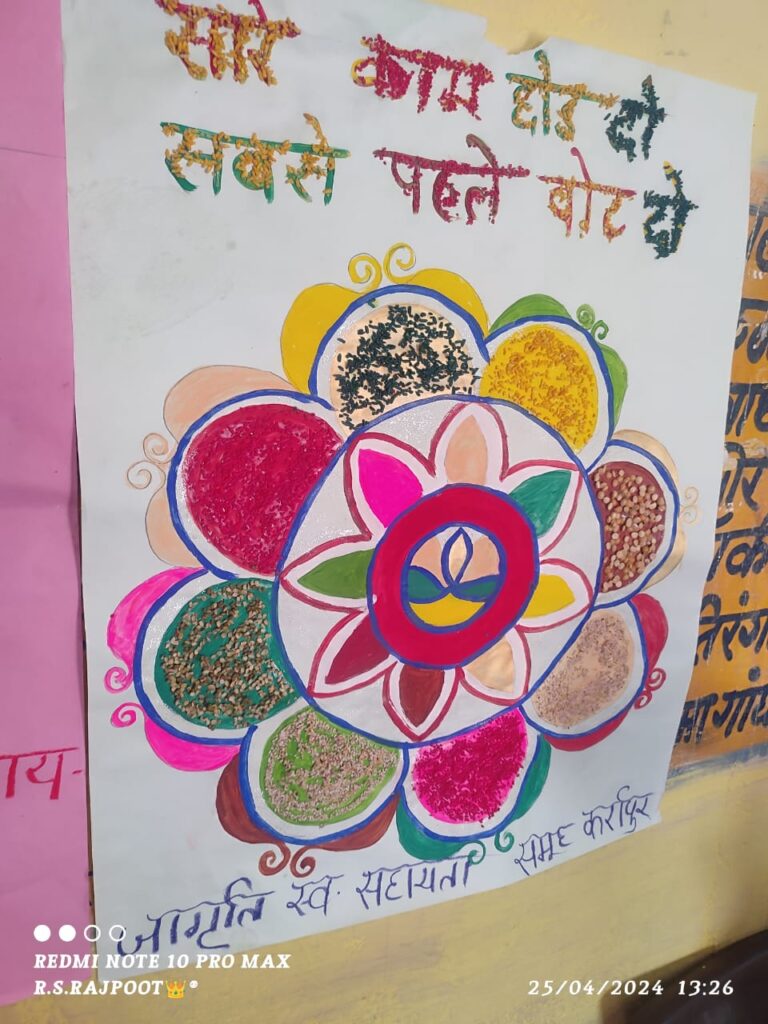 सारे काम छोड दो
सबसे पहले वोट दो
जागृति स्व. सहायता समूह कर्रापुर
REDMI NOTE 10 PRO MAX
R.S.RAJPOOT👑® 25/04/2024 13:26